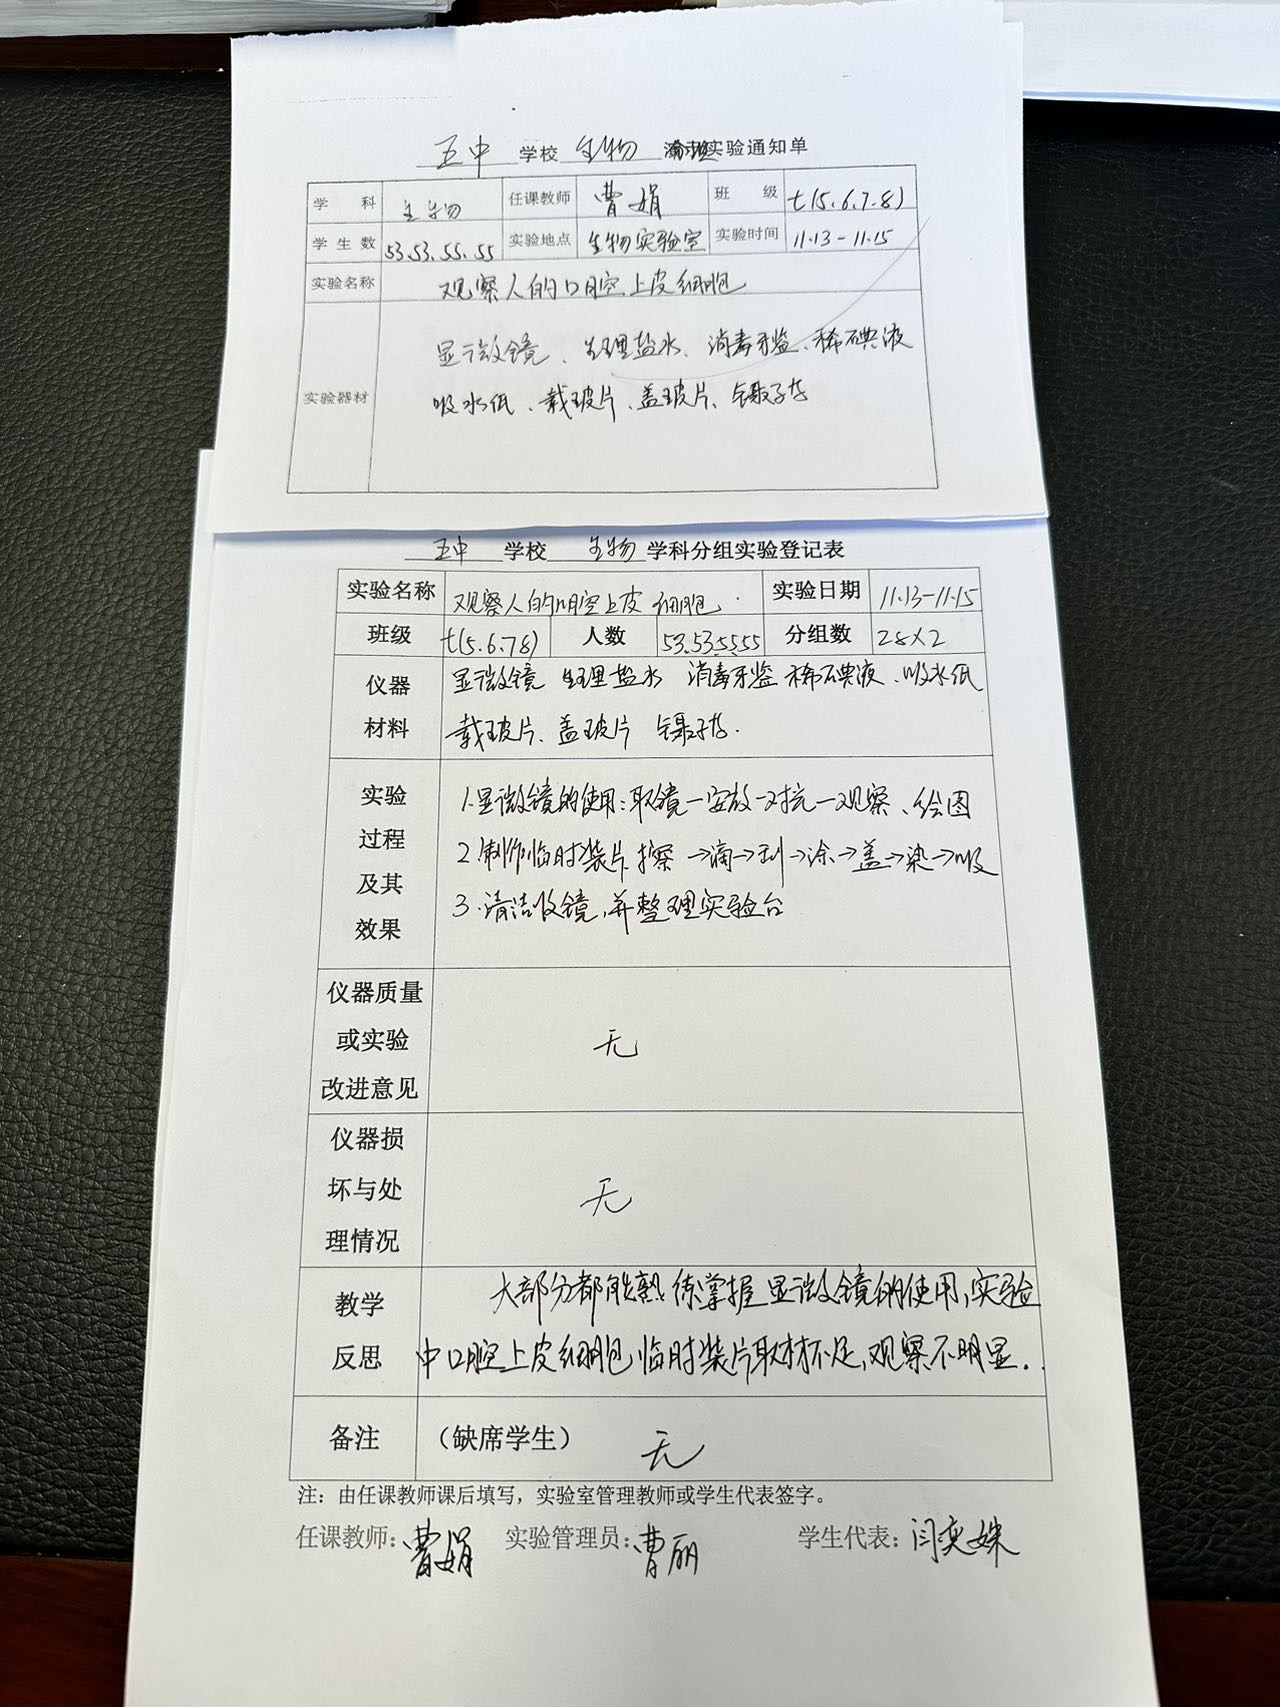 五中 学校 生物 实验通知单
学 科 生物 任课教师 曹娟 班 级 七(5.6.7.8)
学生数 53.53.55.55 实验地点 生物实验室 实验时间 11.13-11.15
实验名称 观察人的口腔上皮细胞
显微镜、生理盐水、消毒牙签、稀碘液
实验器材 吸水纸、载玻片、盖玻片、镊子等
五中 学校 生物 学科分组实验登记表
实验名称 观察人的口腔上皮细胞. 实验日期 11.13-11.15
班级 七(5.6.7.8) 人数 53.53.55.55 分组数 28×2
仪器 显微镜 生理盐水 消毒牙签 稀碘液、吸水纸
材料 载玻片、盖玻片 镊子等.
实验 1.显微镜的使用:取镜-安放-对光-观察、绘图
过程 2.制作临时装片 擦→滴→刮→涂→盖→染→吸
及其 3.清洁收镜,并整理实验台
效果
仪器质量
或实验 无
改进意见
仪器损
坏与处 无
理情况
教学 大部分都能熟练掌握显微镜的使用,实验
反思 中口腔上皮细胞临时装片取材不足,观察不明显..
备注 (缺席学生) 无
注:由任课教师课后填写,实验室管理教师或学生代表签字。
任课教师:曹娟 实验管理员:曹丽 学生代表:闫奕姝